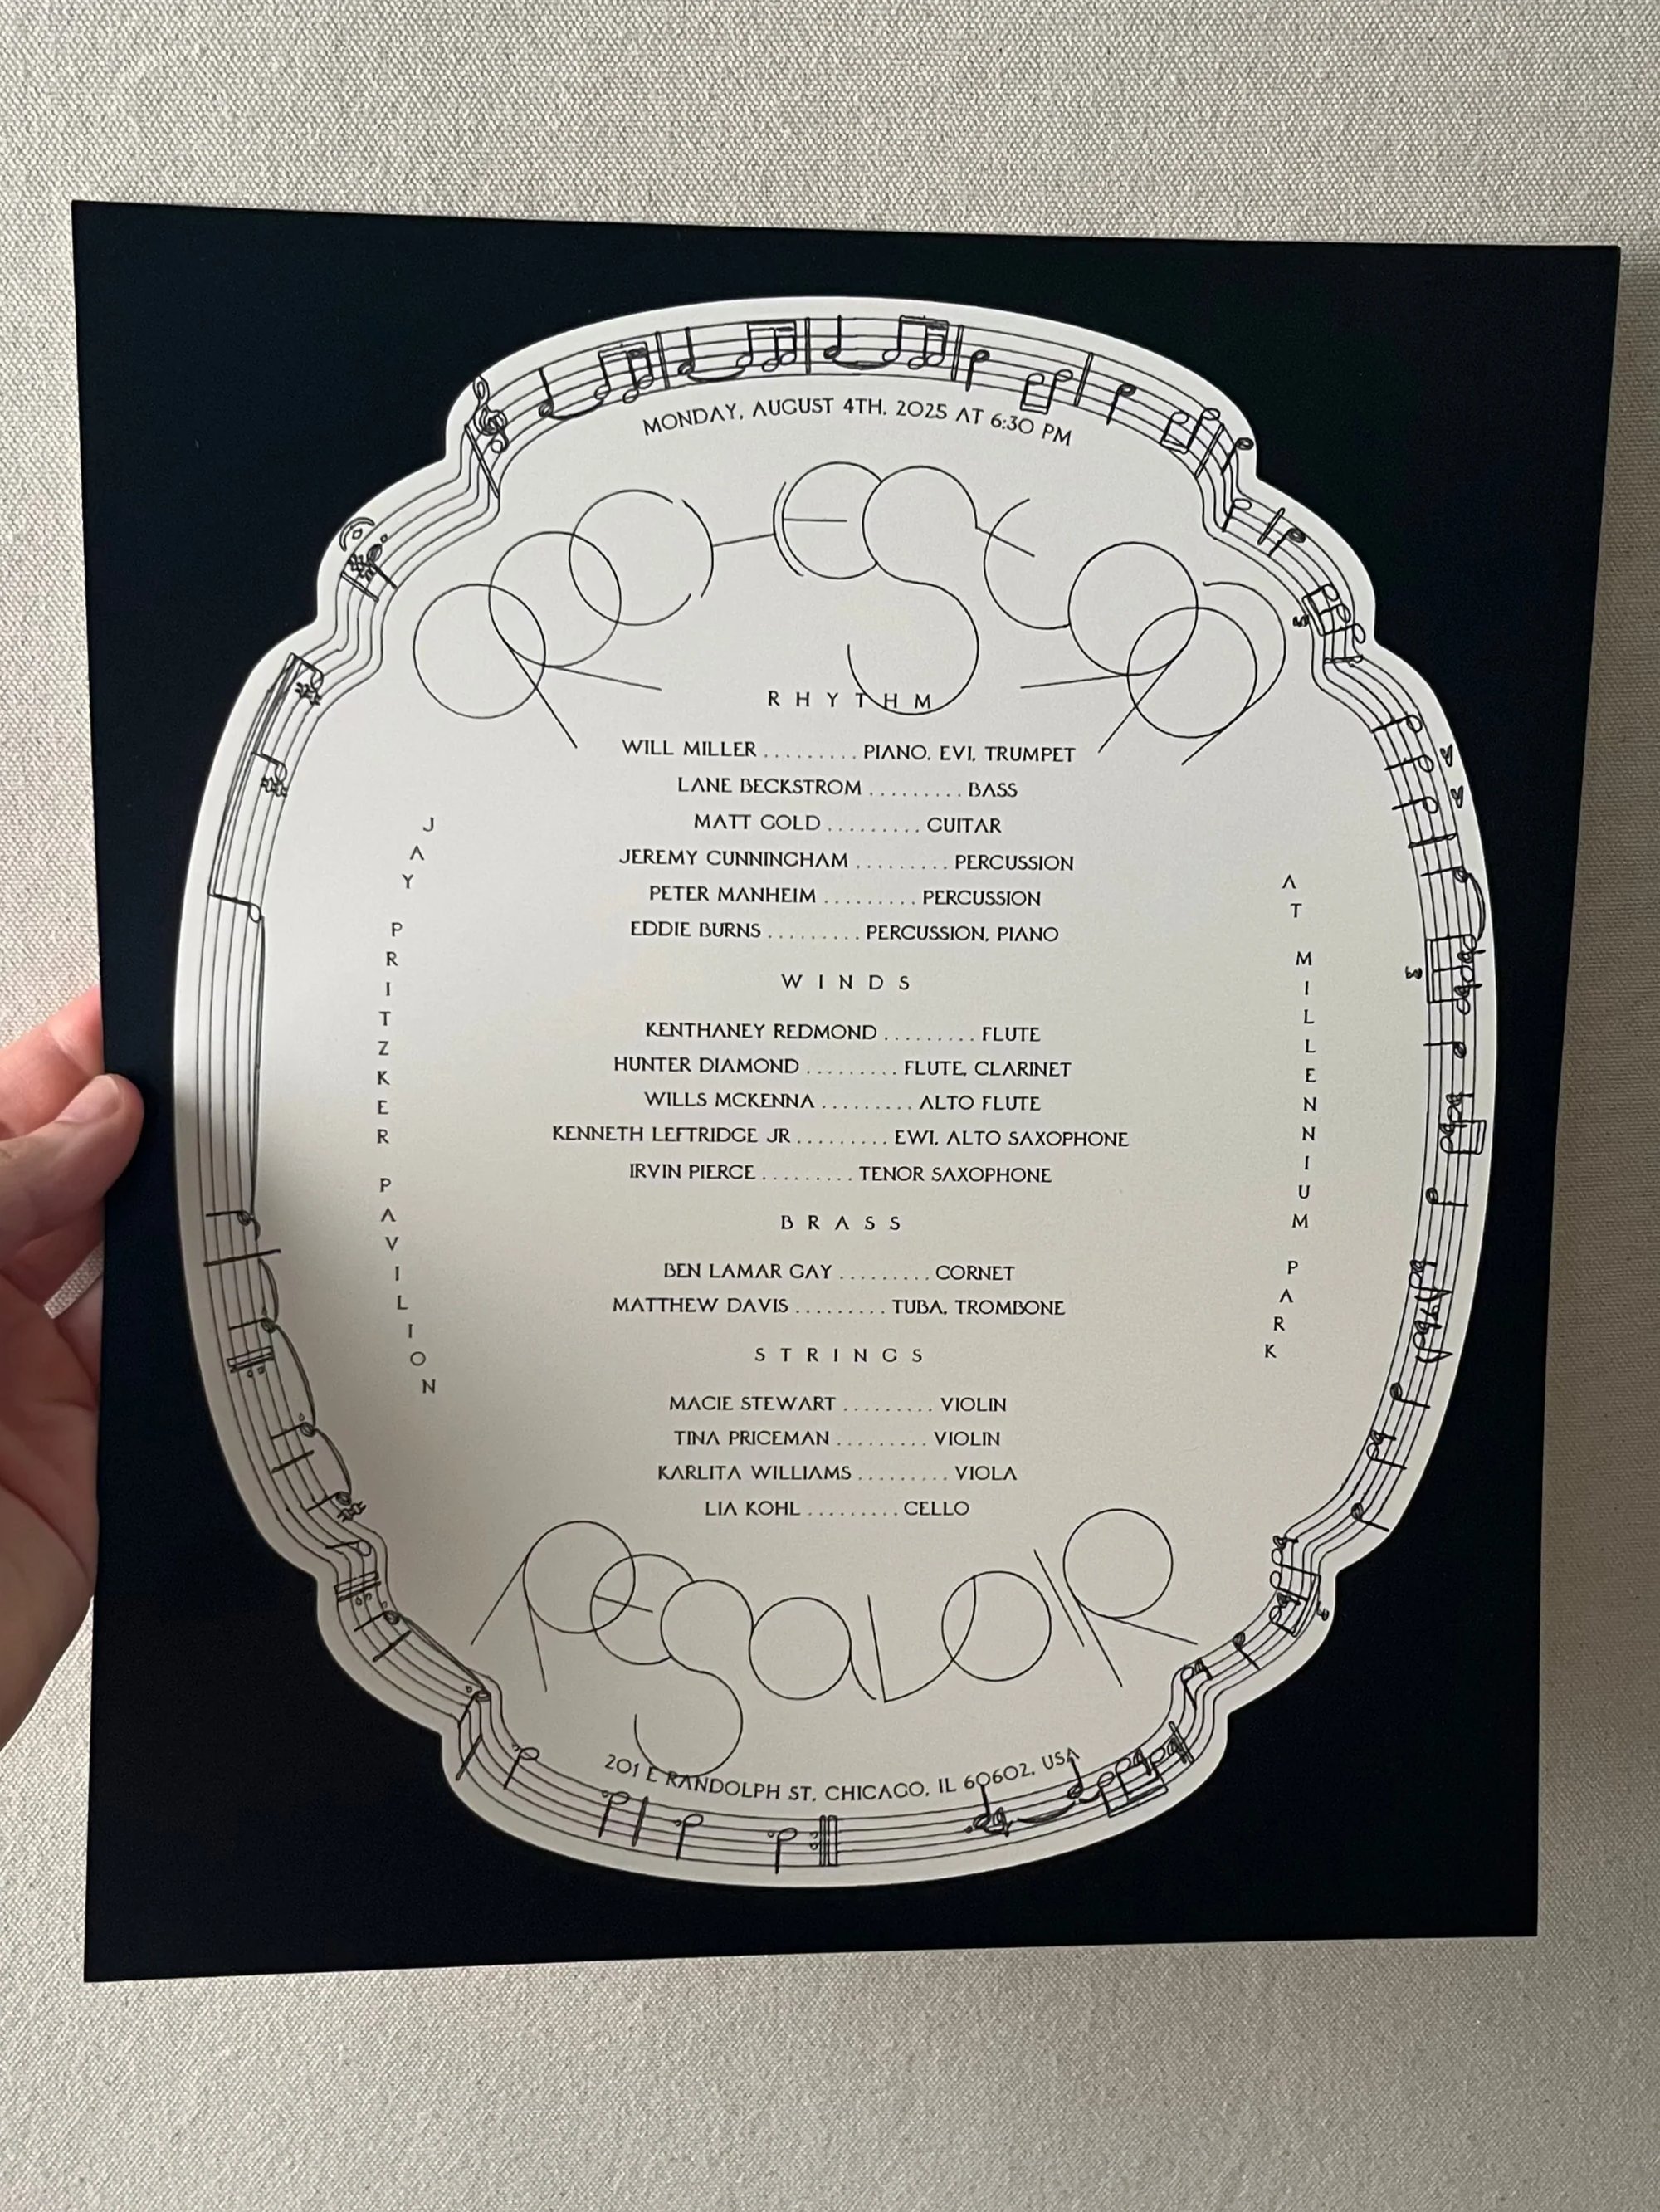 MONDAY, AUGUST 4TH, 2025 AT 6:30 PM
RHYTHM
WILL MILLER ......... PIANO, EVI, TRUMPET
LANE BECKSTROM ......... BASS
MATT GOLD ......... GUITAR
JEREMY CUNNINGHAM ......... PERCUSSION
PETER MANHEIM ......... PERCUSSION
EDDIE BURNS ......... PERCUSSION, PIANO
WINDS
KENTHANEY REDMOND ......... FLUTE
HUNTER DIAMOND ......... FLUTE, CLARINET
WILLS MCKENNA ......... ALTO FLUTE
KENNETH LEFTRIDGE JR ......... EWI, ALTO SAXOPHONE
IRVIN PIERCE ......... TENOR SAXOPHONE
BRASS
BEN LAMAR GAY ......... CORNET
MATTHEW DAVIS ......... TUBA, TROMBONE
STRINGS
MACIE STEWART ......... VIOLIN
TINA PRICEMAN ......... VIOLIN
KARLITA WILLIAMS ......... VIOLA
LIA KOHL ......... CELLO
JAY PRITZKER PAVILION
AT MILLENNIUM PARK
RESAVOIR
201 E RANDOLPH ST, CHICAGO, IL 60602, USA